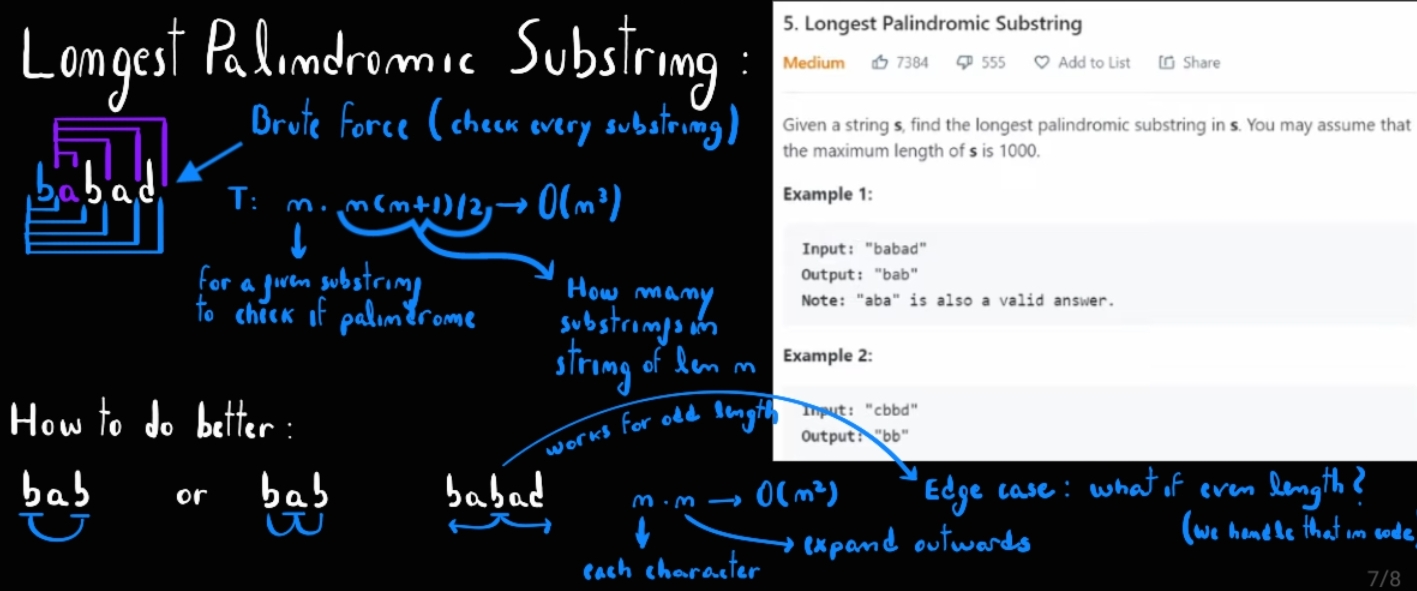 Longest Palindromic Substring :
Brute Force (check every substring)
babad
T: n · n(n+1)/2 → O(n³)
for a given substring
to check if palindrome
How many
substrings in
string of len n
How to do better :
works for odd length
bab or bab babad
n · n → O(n²)
each character
expand outwards
Edge case : what if even length?
(we handle that in code)
5. Longest Palindromic Substring
Medium 7384 555 Add to List Share
Given a string s, find the longest palindromic substring in s. You may assume that
the maximum length of s is 1000.
Example 1:
Input: "babad"
Output: "bab"
Note: "aba" is also a valid answer.
Example 2:
Input: "cbbd"
Output: "bb"
7/8